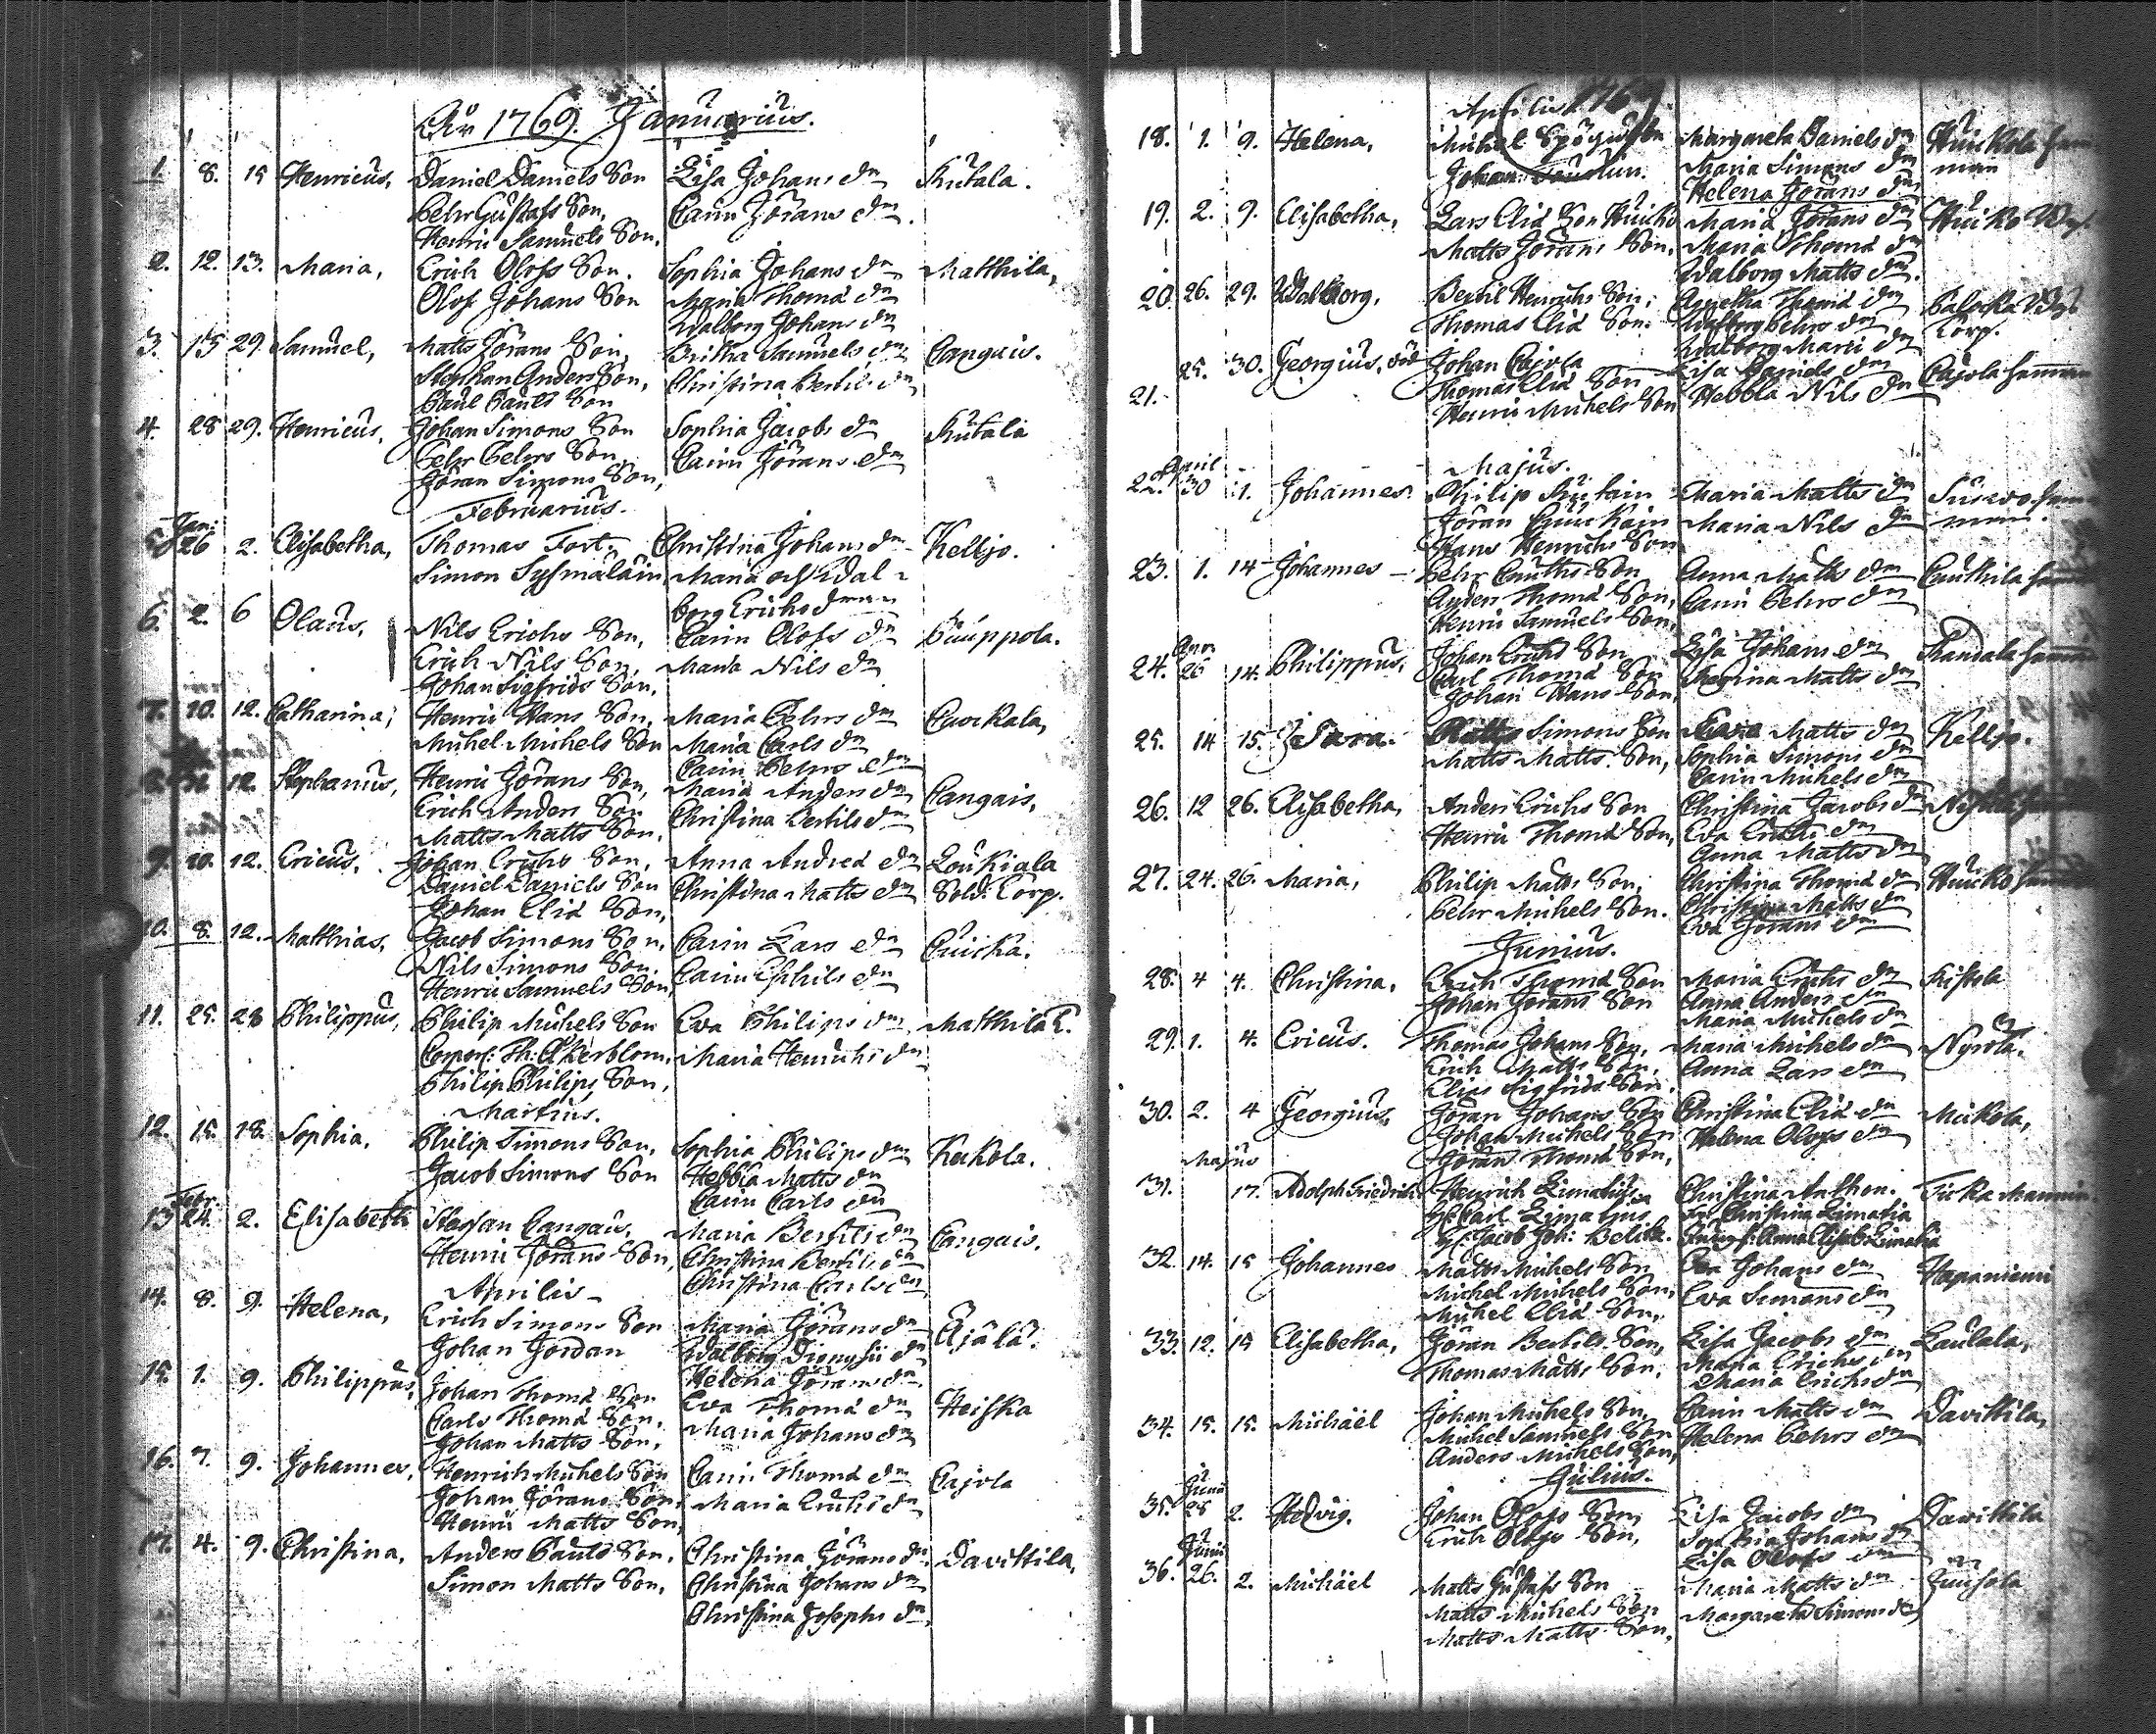 År 1769. Januarius.
1. 8. 15 Henricus, Daniel Daniels Son Lisa Johans dr Skutala.
Pehr Gustafs Son, Carin Jörans dr.
Henric Samuels Son,
2. 12. 13. Maria, Erich Olofs Son. Sophia Johans dr Matthila,
Olof Johans Son Maria Thomæ dr
Walborg Johans dr
3. 15 29. Samuel, Matts Jörans Son, Britha Samuels dr Pangais.
Stephan Anders Son, Christina Bertils dr
Paul Pauls Son
4. 28 29. Henricus, Johan Simons Son Sophia Jacobs dr Skutala
Pehr Pehrs Son, Carin Jörans dr
Göran Simons Son,
Februarius.
Jan:
5 26 2. Elisabetha, Thomas Fort, Christina Johans dr Keltjo.
Simon Sysmäläin Maria och Wal-
borg Erichs dr
6. 2. 6 Olaus, Nils Erichs Son, Carin Olofs dr Puuppola.
Erich Nils Son, Maria Nils dr
Johan Sigfrids Son,
7. 10. 12. Catharina, Henric Hans Son, Maria Pehrs dr
Michel Michels Son Maria Carls dr
Carin Pehrs dr
12. Stephanus, Henric Jörans Son, Maria Anders dr Pangais,
Erich Anders Son. Christina Bertils dr
Matts Matts Son.
9. 10. 12. Ericus, Johan Erichs Son, Anna Andreæ dr Loukiala
Daniel Daniels Son Christina Matts dr Sold. Torp.
Johan Eliæ Son,
10. 8. 12. Matthias, Jacob Simons Son, Carin Lars dr
Nils Simons Son. Carin Philips dr
Henric Samuels Son,
11. 25. 28 Philippus, Philip Michels Son Eva Philips dr Matthila
Corporl: Th: Åkerblom, Maria Henrichs dr
Philip Philips Son,
Martius.
12. 15. 18. Sophia, Philip Simons Son, Sophia Philips dr Kekola.
Jacob Simons Son Hebbla Matts dr
Carin Carls dr
Febr
13 24. 2. Elisabeth Staffan Pangais, Maria Bertils dr Pangais.
Henric Jörans Son, Christina Bertils dr
Christina Carls dr
Aprilis
14. 8. 9. Helena, Erich Simons Son Maria Jörans dr Äjälä.
Johan Jordan Walborg Dionysii dr
Helena Jörans dr
15. 1. 9. Philippus, Johan Thomæ Son Eva Thomæ dr Heiska
Carls Thomæ Son, Maria Johans dr
Johan Matts Son,
16. 7. 9. Johannes, Henrich Michels Son Carin Thomæ dr Pajola
Johan Jörans Son, Maria Erichs dr
Henric Matts Son,
17. 4. 9. Christina, Anders Pauls Son, Christina Jörans dr Davittila,
Simon Matts Son, Christina Johans dr
Christina Josephs dr,
Aprilis 1769
18. 1. 9. Helena, Michel Margareta Daniels dr
Johan Maria Simons dr
Helena Jörans dr
19. 2. 9. Elisabetha, Lars Eliæ Son Maria Jörans dr
Matts Jörans Son, Maria Thomæ dr
Walborg Matts dr.
20. 26. 29. Walborg, Bertil Henrichs Son, Agnetha Thomæ dr
Thomas Eliæ Son. Walborg Pehrs dr Torp.
Walborg Marci dr
21. 25. 30. Georgius, Johan Lisa Daniels dr Pajola
Thomas Eliæ Son Hebbla Nils dr
Henric Michels Son
Majus.
April
22. 30 1. Johannes Philip Maria Matts dr
Jöran Maria Nils dr
Hans Henrichs Son
23. 1. 14 Johannes Pehr Son Anna Matts dr
Anders Thomæ Son, Carin Pehrs dr
Henric Samuels Son,
24. 26 14. Philippus, Johan Erichs Son Lisa Johans dr
Carl Thomæ Son Regina Matts dr
Johan Hans Son,
25. 14 15. Sara. Matts Simons Son Matts dr Keltjo.
Matts Matts Son, Sophia Simons dr
Carin Michels dr
26. 12 26. Elisabetha, Anders Erichs Son Christina Jacobs dr
Henric Thomæ Son, Eva dr
Anna Matts dr
27. 24. 26. Maria, Philip Matts Son, Christina Thomæ dr
Pehr Michels Son. Christina Matts dr
Eva Jörans dr
Junius.
28. 4 4. Christina, Erich Thomæ Son Maria Erichs dr
Johan Jörans Son Anna Anders dr
Maria Michels dr
29. 1. 4. Ericus. Thomas Johans Son, Maria Michels dr
Erich Matts Son, Anna Lars dr
Elias Sigfrids Son.
30. 2. 4 Georgius, Jöran Johans Son Christina Eliæ dr Mickola,
Johan Michels Son Helena Olofs dr
Jöran Thomæ Son,
Majus
31. 17. Adolph Friedrich Henrich Limatius Christina Anthon.
Hr Carl Limatius Fr. Christina Limatia
Hr: Jacob Joh: Jungf: Anna Elisab Limatia
32. 14. 15 Johannes Matts Michels Son Eva Johans dr Hapaniemi
Michel Michels Son, Eva Simons dr
Michel Eliæ Son,
33. 12. 15 Elisabetha, Jöran Bertils Son, Lisa Jacobs dr Laulala,
Thomas Matts Son. Maria Erichs dr
Maria Erichs dr
34. 15. 15. Michäel Johan Michels Son, Carin Matts dr Davittila,
Michel Samuels Son Helena Pehrs dr
Anders Michels Son,
Julius.
Junii
35. 28 2. Hedvig. Johan Olofs Son, Lisa Jacobs dr Davittila
Erich Olofs Son, Sophia Johans dr
Lisa Olofs dr
Junii
36. 26. 2. Michäel Matts Gustafs Son Maria Matts dr
Matts Michels Son Margareta Simons dr
Matts Matts Son,